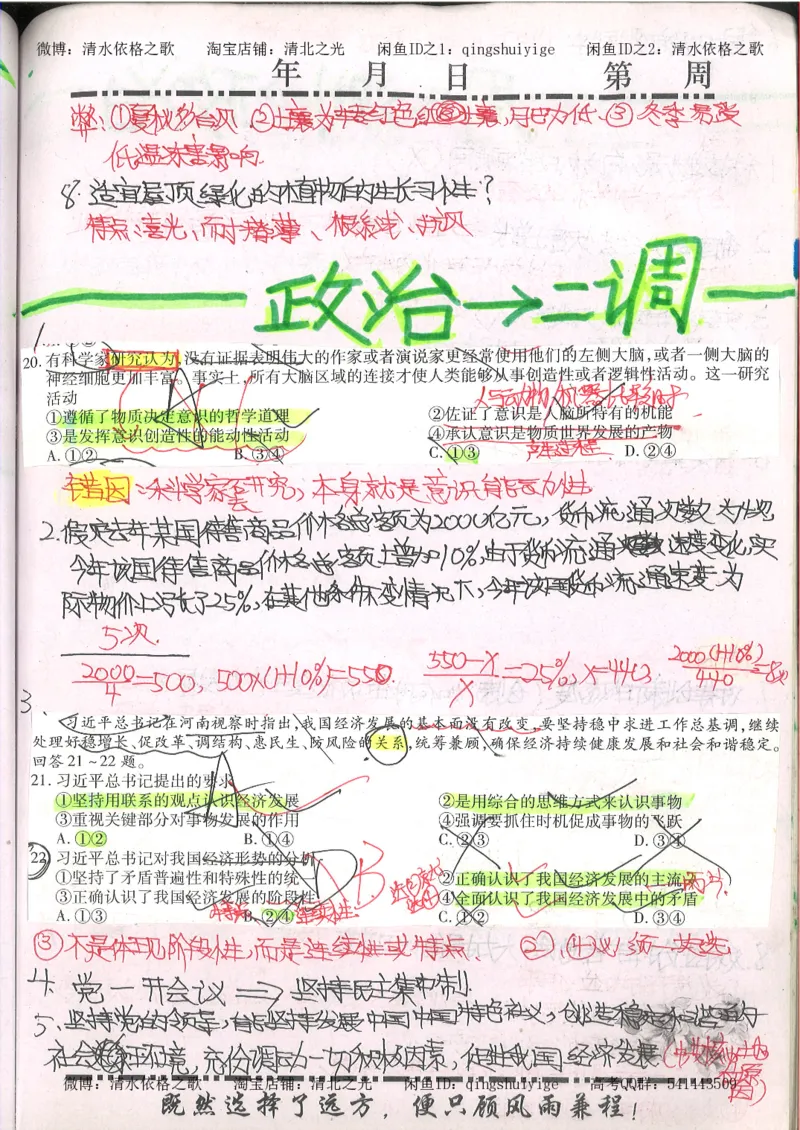 微博：清水依格之歌 淘宝店铺：清北之光 闲鱼ID之1：qingshuiyige 闲鱼ID之2：清水依格之歌
年 月 日 第 周
弊：①夏秋多台风 ②土壤为红色土壤，肥力低 ③冬季易受
低温冻害影响.
8. 适宜屋顶绿化的植物的生长习性？
特点：喜光、耐瘠薄、根系浅、抗风
政治→二调
1
20. 有科学家研究认为，没有证据表明伟大的作家或者演说家更经常使用他们的左侧大脑，或者一侧大脑的
神经细胞更加丰富。事实上，所有大脑区域的连接才使人类能够从事创造性或者逻辑性活动。这一研究
活动
人与动物、机器比较时
①遵循了物质决定意识的哲学道理 ②佐证了意识是人脑所特有的机能
③是发挥意识创造性的能动性活动 ④承认意识是物质世界发展的产物
A. ①② B. ③④ C. ①③ D. ②④
错因：科学家研究，本身就是意识能动性
2. 假定去年某国待售商品价格总额为2000亿元，货币流通次数为4次
今年该国待售商品价格总额上增加10%，由于货币流通速度变化，实
际物价上涨了25%，在其他条件不变情况下，今年该国货币流通速度为
5次.
2000/4=500，500×(1+10%)=550. (550-x)/x=25%，x=440 2000(1+10%)/440=
3、
习近平总书记在河南视察时指出，我国经济发展的基本面没有改变，要坚持稳中求进工作总基调，继续
处理好稳增长、促改革、调结构、惠民生、防风险的关系，统筹兼顾，确保经济持续健康发展和社会和谐稳定。
回答 21～22 题。
21. 习近平总书记提出的要求
①坚持用联系的观点认识经济发展 ②是用综合的思维方式来认识事物
③重视关键部分对事物发展的作用 ④强调要抓住时机促成事物的飞跃
A. ①② B. ①④ C. ②③ D. ③④
22. 习近平总书记对我国经济形势的分析
B
①坚持了矛盾普遍性和特殊性的统一 ②正确认识了我国经济发展的主流
③正确认识了我国经济发展的阶段性 ④全面认识了我国经济发展中的矛盾
A. ①③ B. ②④ C. ①② D. ③④
③不是体现阶段性，而是连续性或特点. ②、④必须一块选
4. 党一开会议 ⇒ 坚持民主集中制.
5. 坚持党的领导，有能坚持发展中国特色社义，创造稳定和谐的
社会环境，充份调动一切积极因素，促进我国经济发展
微博：清水依格之歌 淘宝店铺：清北之光 闲鱼ID：qingshuiyige 高考QQ群：541443509
既然选择了远方，便只顾风雨兼程！